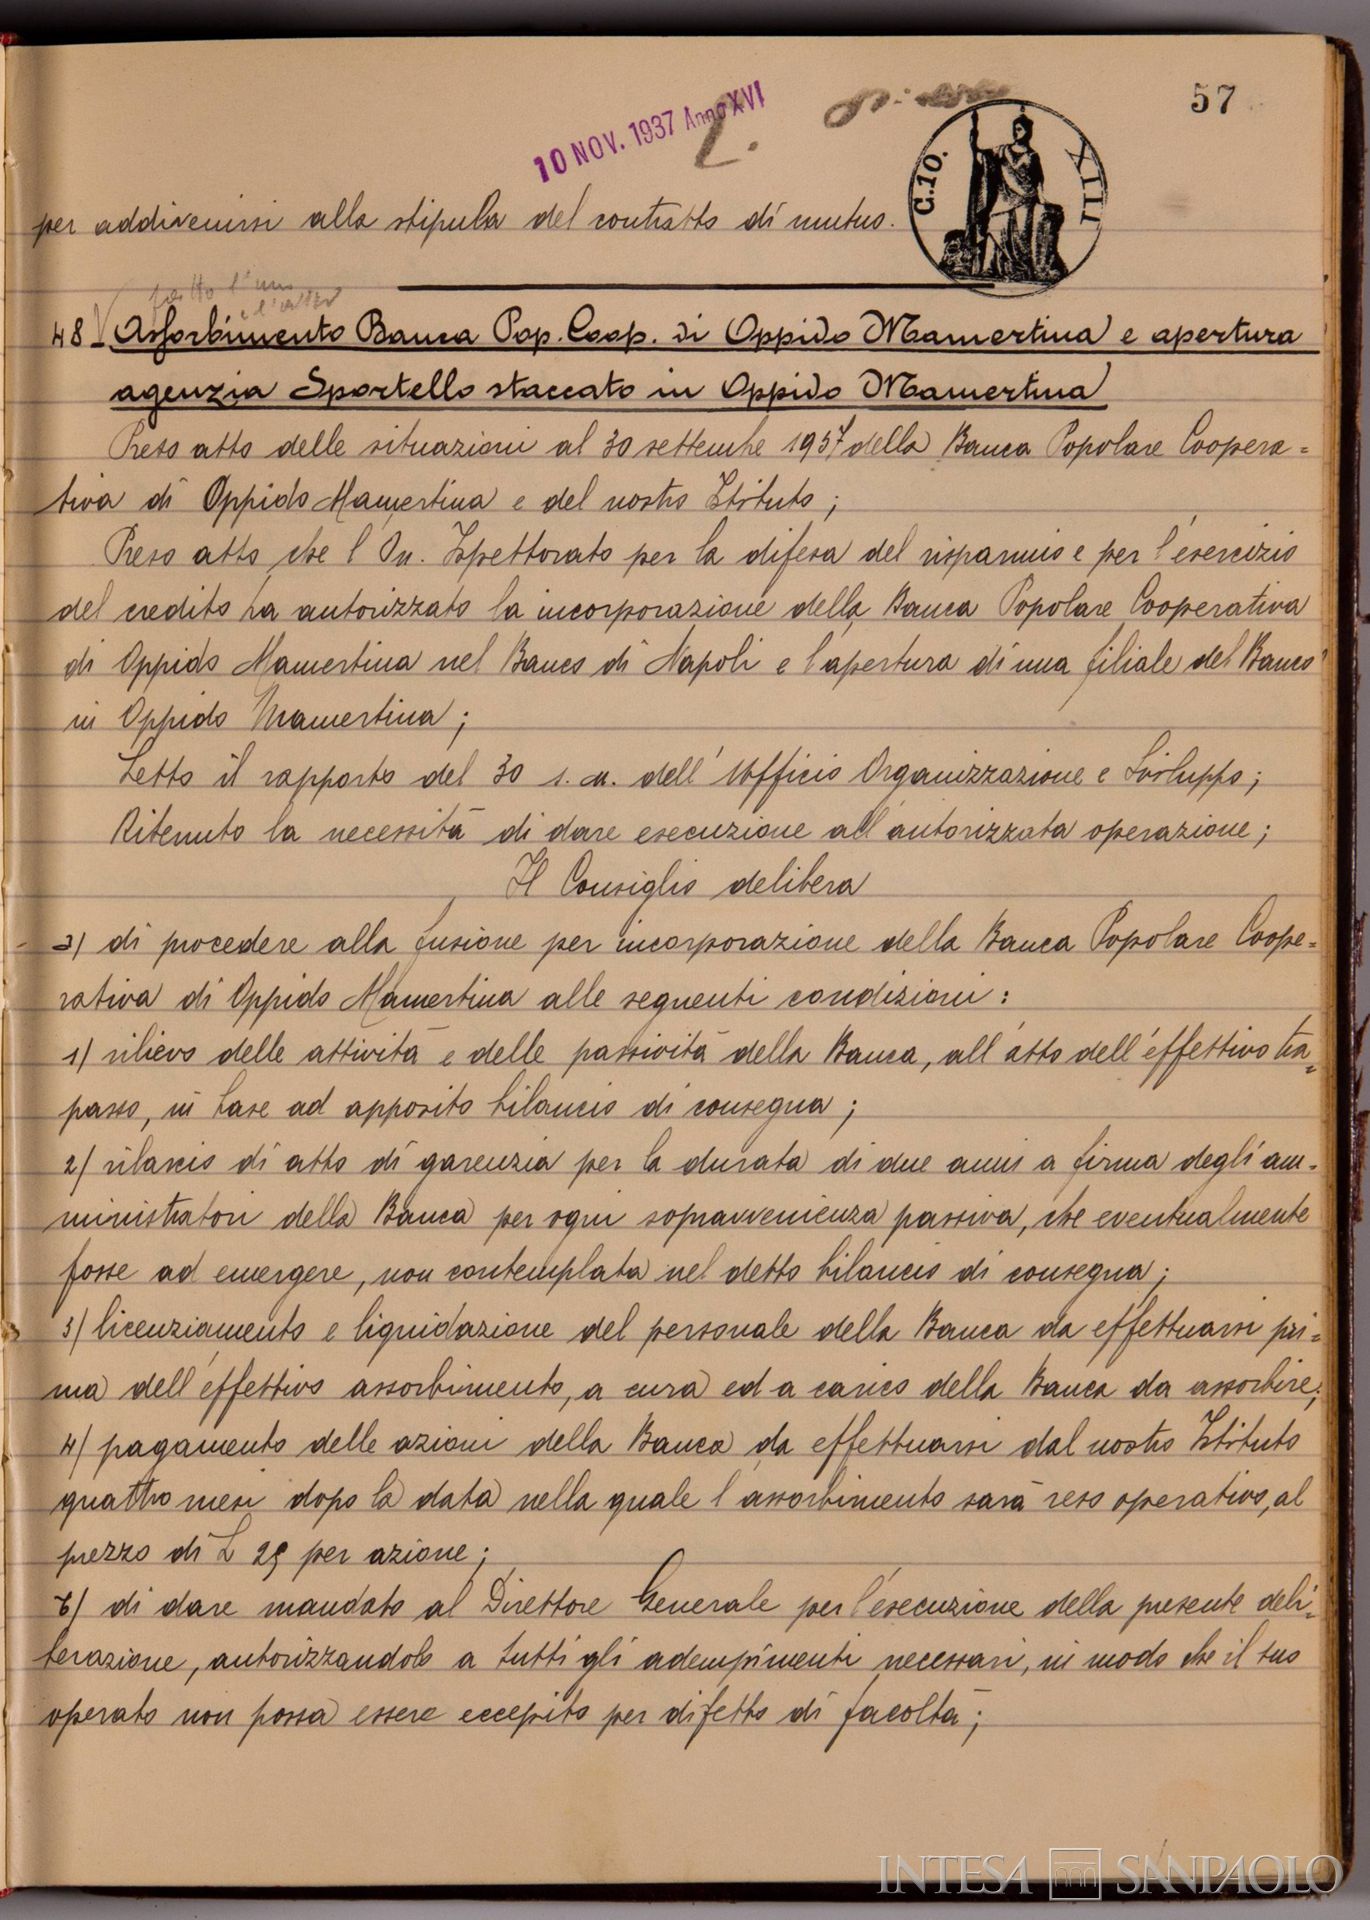 57
10 NOV. 1937 Anno XVI
C.10. XIII
per addivenirsi alla stipula del contratto di mutuo.
fatto l'uno
e l'altro
48) Assorbimento Banca Pop. Coop. di Oppido Mamertina e apertura
agenzia Sportello staccato in Oppido Mamertina
Preso atto delle situazioni al 30 settembre 1937 della Banca Popolare Coopera=
tiva di Oppido Mamertina e del nostro Istituto;
Preso atto, che l'On. Ispettorato per la difesa del risparmio e per l'esercizio
del credito ha autorizzato la incorporazione della Banca Popolare Cooperativa
di Oppido Mamertina nel Banco di Napoli e l'apertura di una filiale del Banco
in Oppido Mamertina;
Letto il rapporto del 30 s.m. dell'Ufficio Organizzazione e Sviluppo;
Ritenuto la necessità di dare esecuzione all'autorizzata operazione;
Il Consiglio delibera
a) di procedere alla fusione per incorporazione della Banca Popolare Coope=
rativa di Oppido Mamertina alle seguenti condizioni:
1) rilievo delle attività e delle passività della Banca, all'atto dell'effettivo tra=
passo, in base ad apposito bilancio di consegna;
2) rilascio di atto di garenzia per la durata di due anni a firma degli am=
ministratori della Banca per ogni sopravvenienza passiva, che eventualmente
fosse ad emergere, non contemplata nel detto bilancio di consegna;
3) licenziamento e liquidazione del personale della Banca da effettuarsi pri=
ma dell'effettivo assorbimento, a cura ed a carico della Banca da assorbire;
4) pagamento delle azioni della Banca da effettuarsi dal nostro Istituto
quattro mesi dopo la data nella quale l'assorbimento sarà reso operativo, al
prezzo di L 25 per azione;
b) di dare mandato al Direttore Generale per l'esecuzione della presente deli=
berazione, autorizzandolo a tutti gli adempimenti necessari, in modo che il suo
operato non possa essere eccepito per difetto di facoltà;
INTESA SANPAOLO